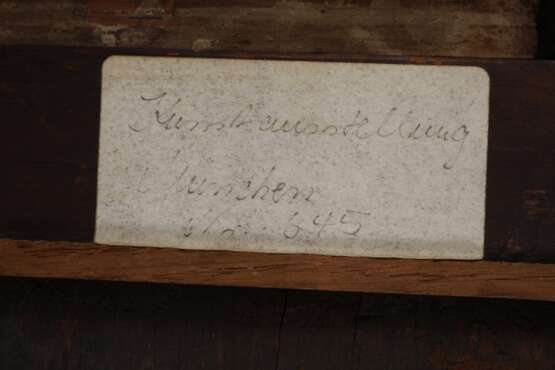 Kunstausstellung
München
Nr. 645